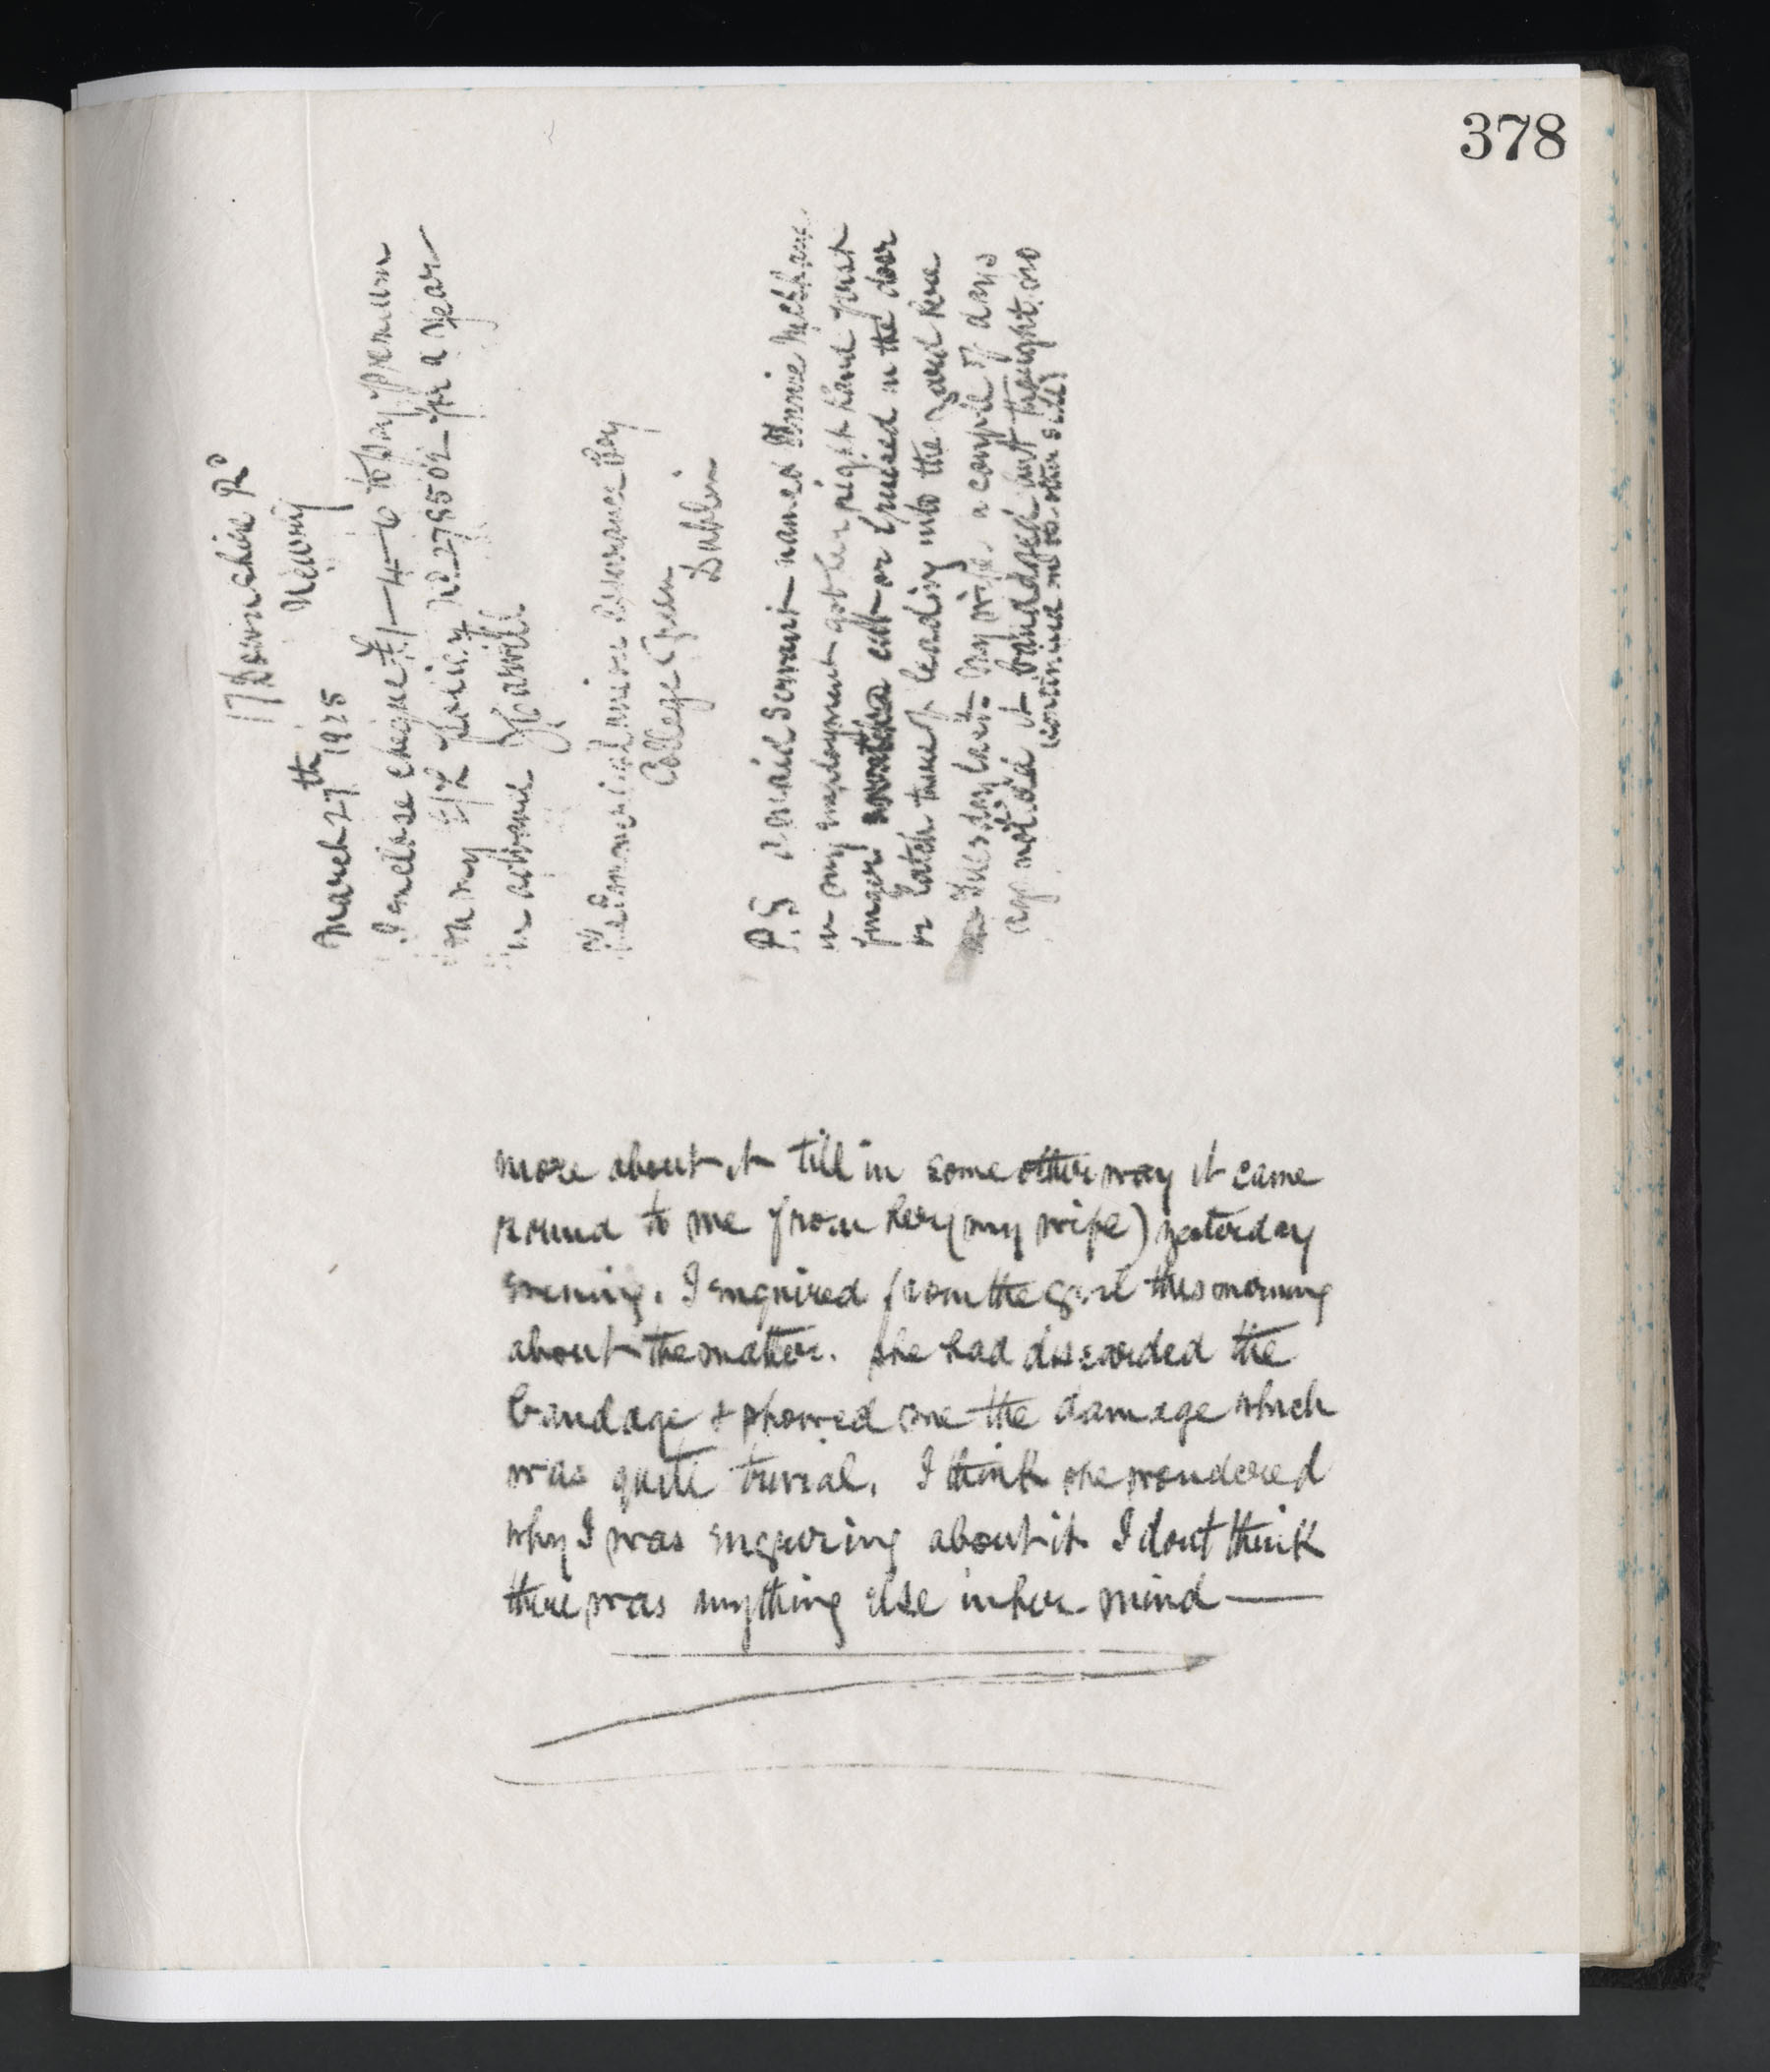 378
17 Downshire Rd
Newry
March 27th 1925
I enclose cheque £1-4-6 to pay premium
on my E/L Policy No 278502 for a year
in advance
The Commercial Union Assurance Coy
College Green
Dublin
P.S A maid servant named Minnie
in my employment got her right hand first
finger cut or bruised in the door
or latch thereof leading into the yard here
Tuesday last. My wife a couple of days
ago noticed it bandaged but thought no
(continued on the other side)
more about it till in some other way it came
round to me from her (my wife) yesterday
evening. I enquired from the girl this morning
about the matter. She had discarded the
bandage & showed me the damage which
was quite trivial. I think she wondered
why I was enquiring about it I dont think
there was anything else in her mind —